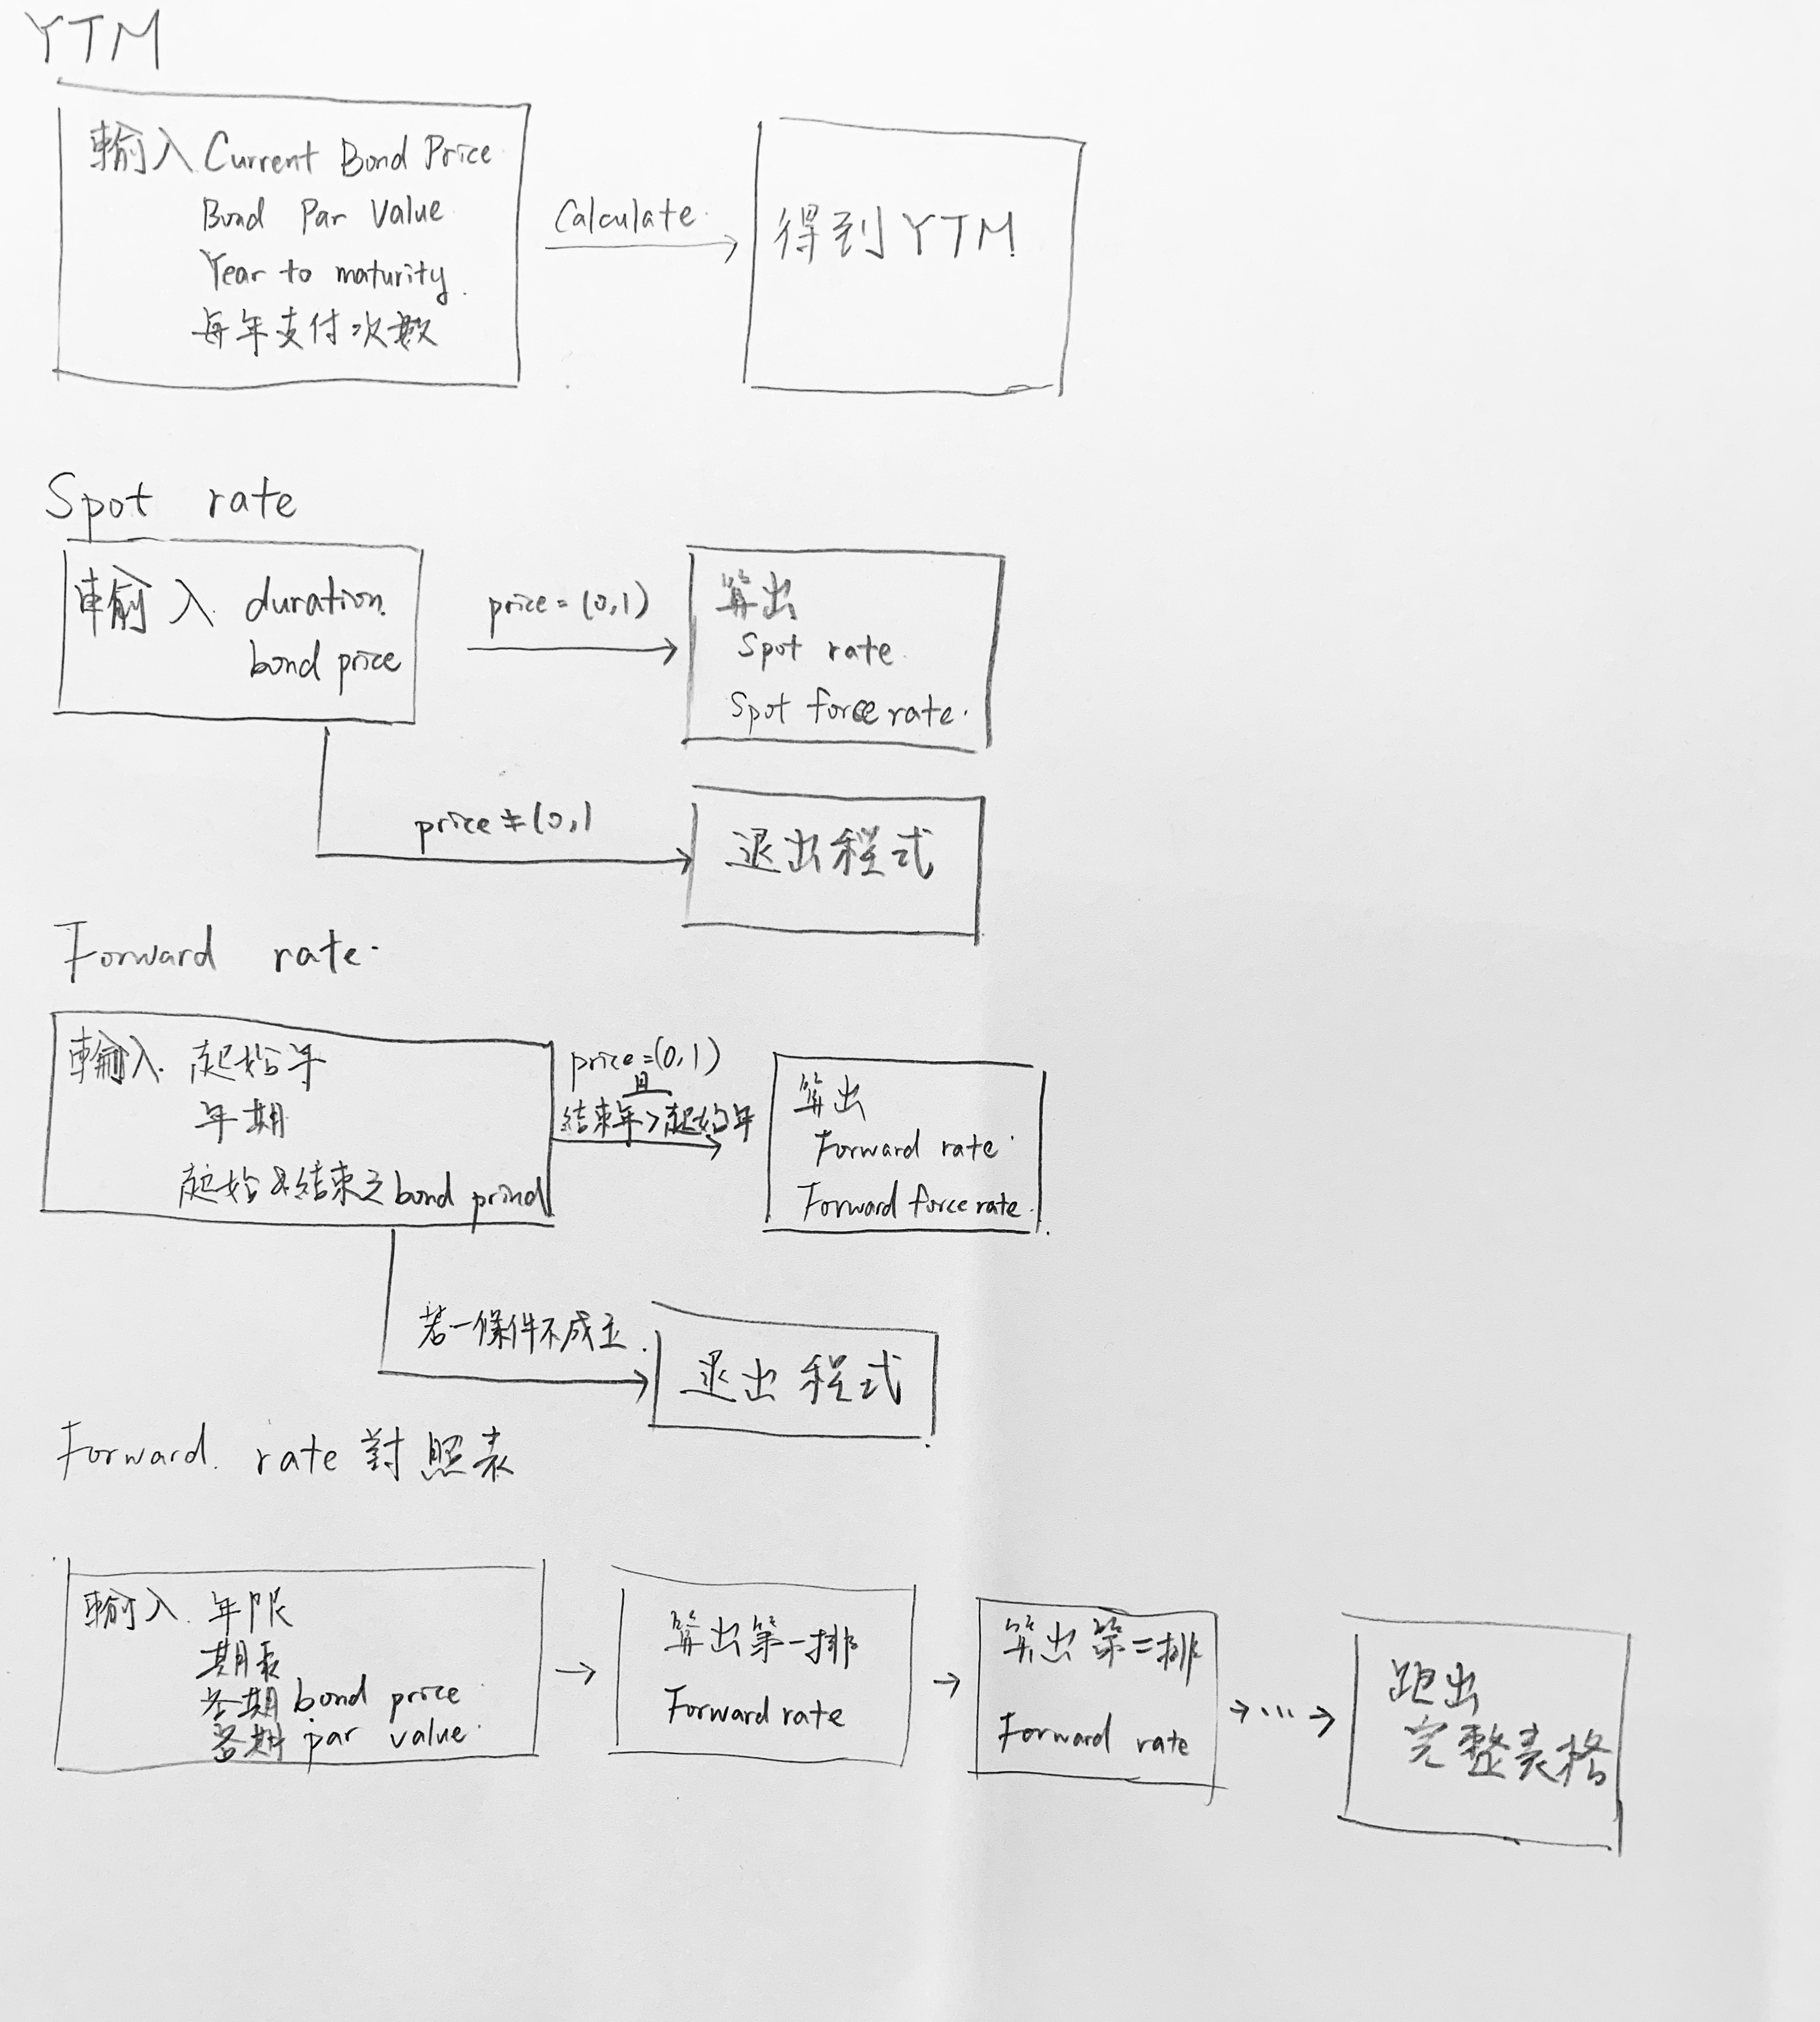 YTM
輸入 Current Bond Price
Bond Par Value
Year to maturity.
每年支付次數
Calculate.
得到 YTM
Spot rate
輸入 duration.
bond price
price = (0,1)
算出
Spot rate.
Spot force rate.
price ≠ (0,1
退出程式
Forward rate.
輸入 起始年
年期
起始&結束之 bond
price = (0,1)
且
結束年>起始年
算出
Forward rate.
Forward force rate.
若一條件不成立.
退出程式
Forward. rate 對照表
輸入. 年限
各期 bond price
各期 par value.
算出第一排
Forward rate
算出第二排
Forward rate
...
跑出
完整表格